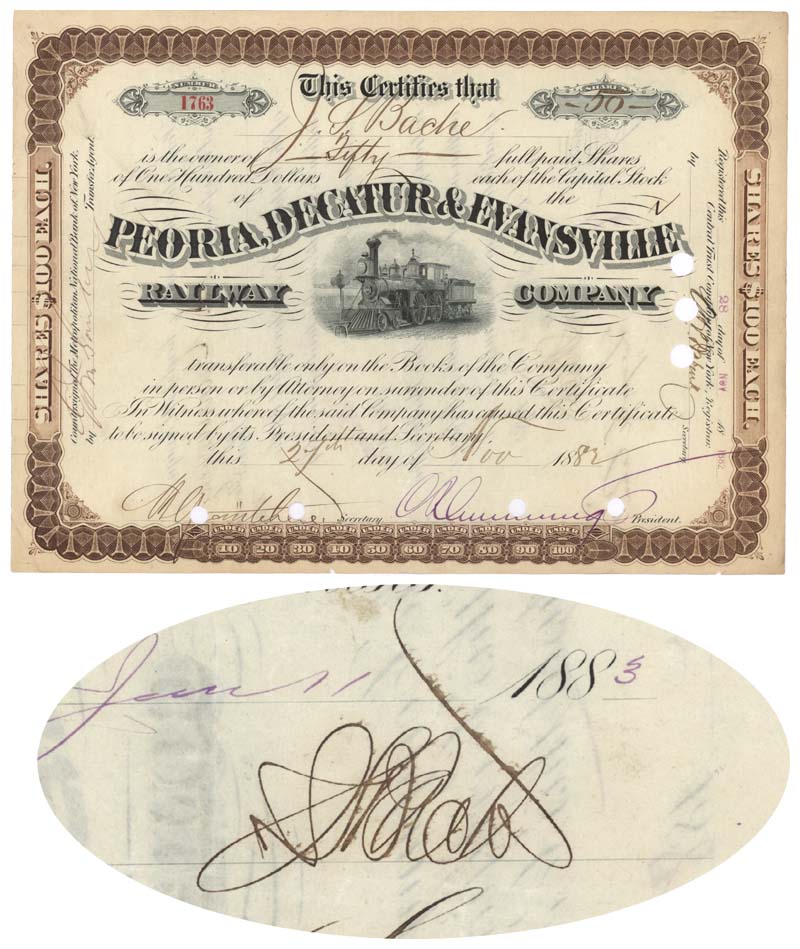 This Certifies that
NUMBER
1763
SHARES
50
J. S. Bache
is the owner of Fifty full paid Shares
of One Hundred Dollars each of the Capital Stock
of the
PEORIA, DECATUR & EVANSVILLE
RAILWAY COMPANY
transferable only on the Books of the Company
in person or by Attorney on surrender of this Certificate
In Witness whereof the said Company has caused this Certificate
to be signed by its President and Secretary
this 27th day of Nov 1882
Secretary President.
UNDER 10 UNDER 20 UNDER 30 UNDER 40 UNDER 50 UNDER 60 UNDER 70 UNDER 80 UNDER 90 UNDER 100
SHARES $100 EACH
Countersigned The Metropolitan National Bank of New York.
Transfer Agent.
by
Registered this 28 day of Nov 1882
Central Trust Company of New York, Registrar.
by Secretary
SHARES $100 EACH
Jan 11 1883